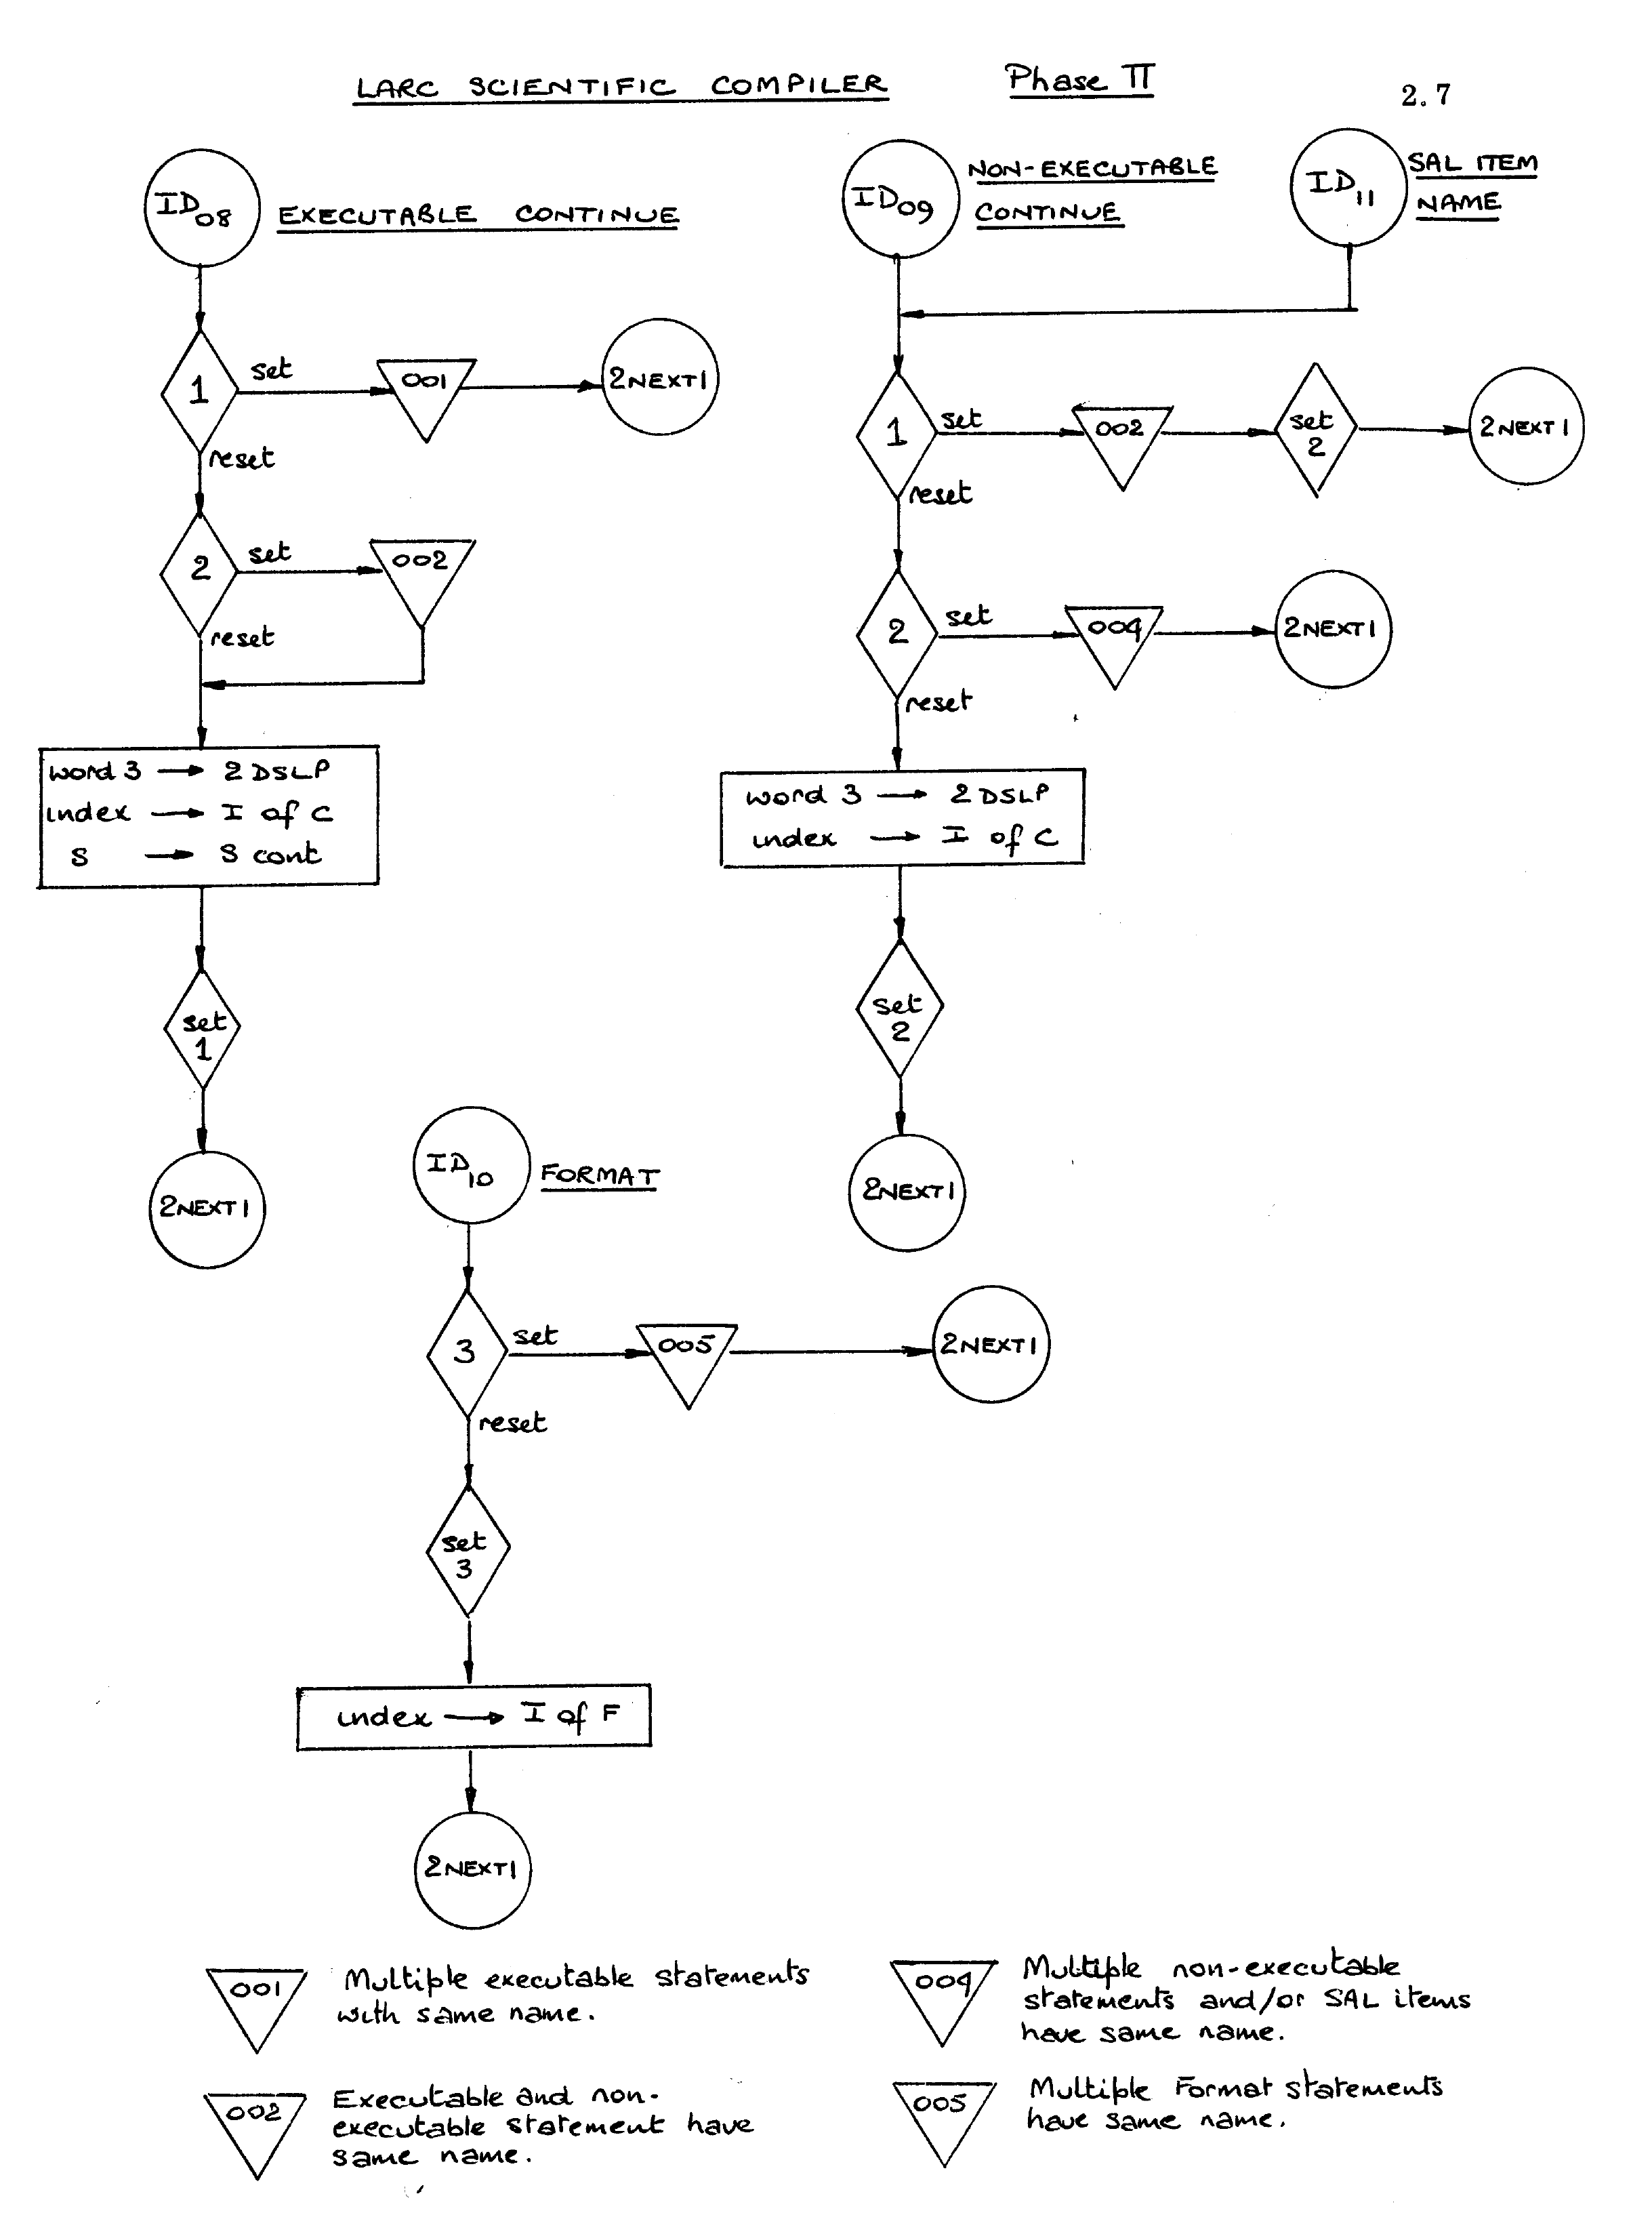 LARC SCIENTIFIC COMPILER Phase II 2.7
ID08 EXECUTABLE CONTINUE
1
set
001
2NEXT1
reset
2
set
002
reset
word 3 → 2DSLP
index → I of C
S → S cont
set
1
2NEXT1
ID09 NON-EXECUTABLE
CONTINUE
ID11 SAL ITEM
NAME
1
set
002
set
2
2NEXT1
reset
2
set
004
2NEXT1
reset
word 3 → 2DSLP
index → I of C
set
2
2NEXT1
ID10 FORMAT
3
set
005
2NEXT1
reset
set
3
index → I of F
2NEXT1
001 Multiple executable statements
with same name.
002 Executable and non-
executable statement have
same name.
004 Multiple non-executable
statements and/or SAL items
have same name.
005 Multiple Format statements
have same name.